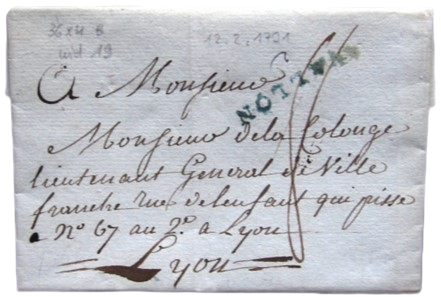 36 x 4 8
ind 19
12.2.1791
NOTTWYL
A Monsieur
Monsieur de la Colonge
lieutenant General de Ville
franche rue de lenfant qui pisse
N° 67 au 2e. a Lyon
Lyon